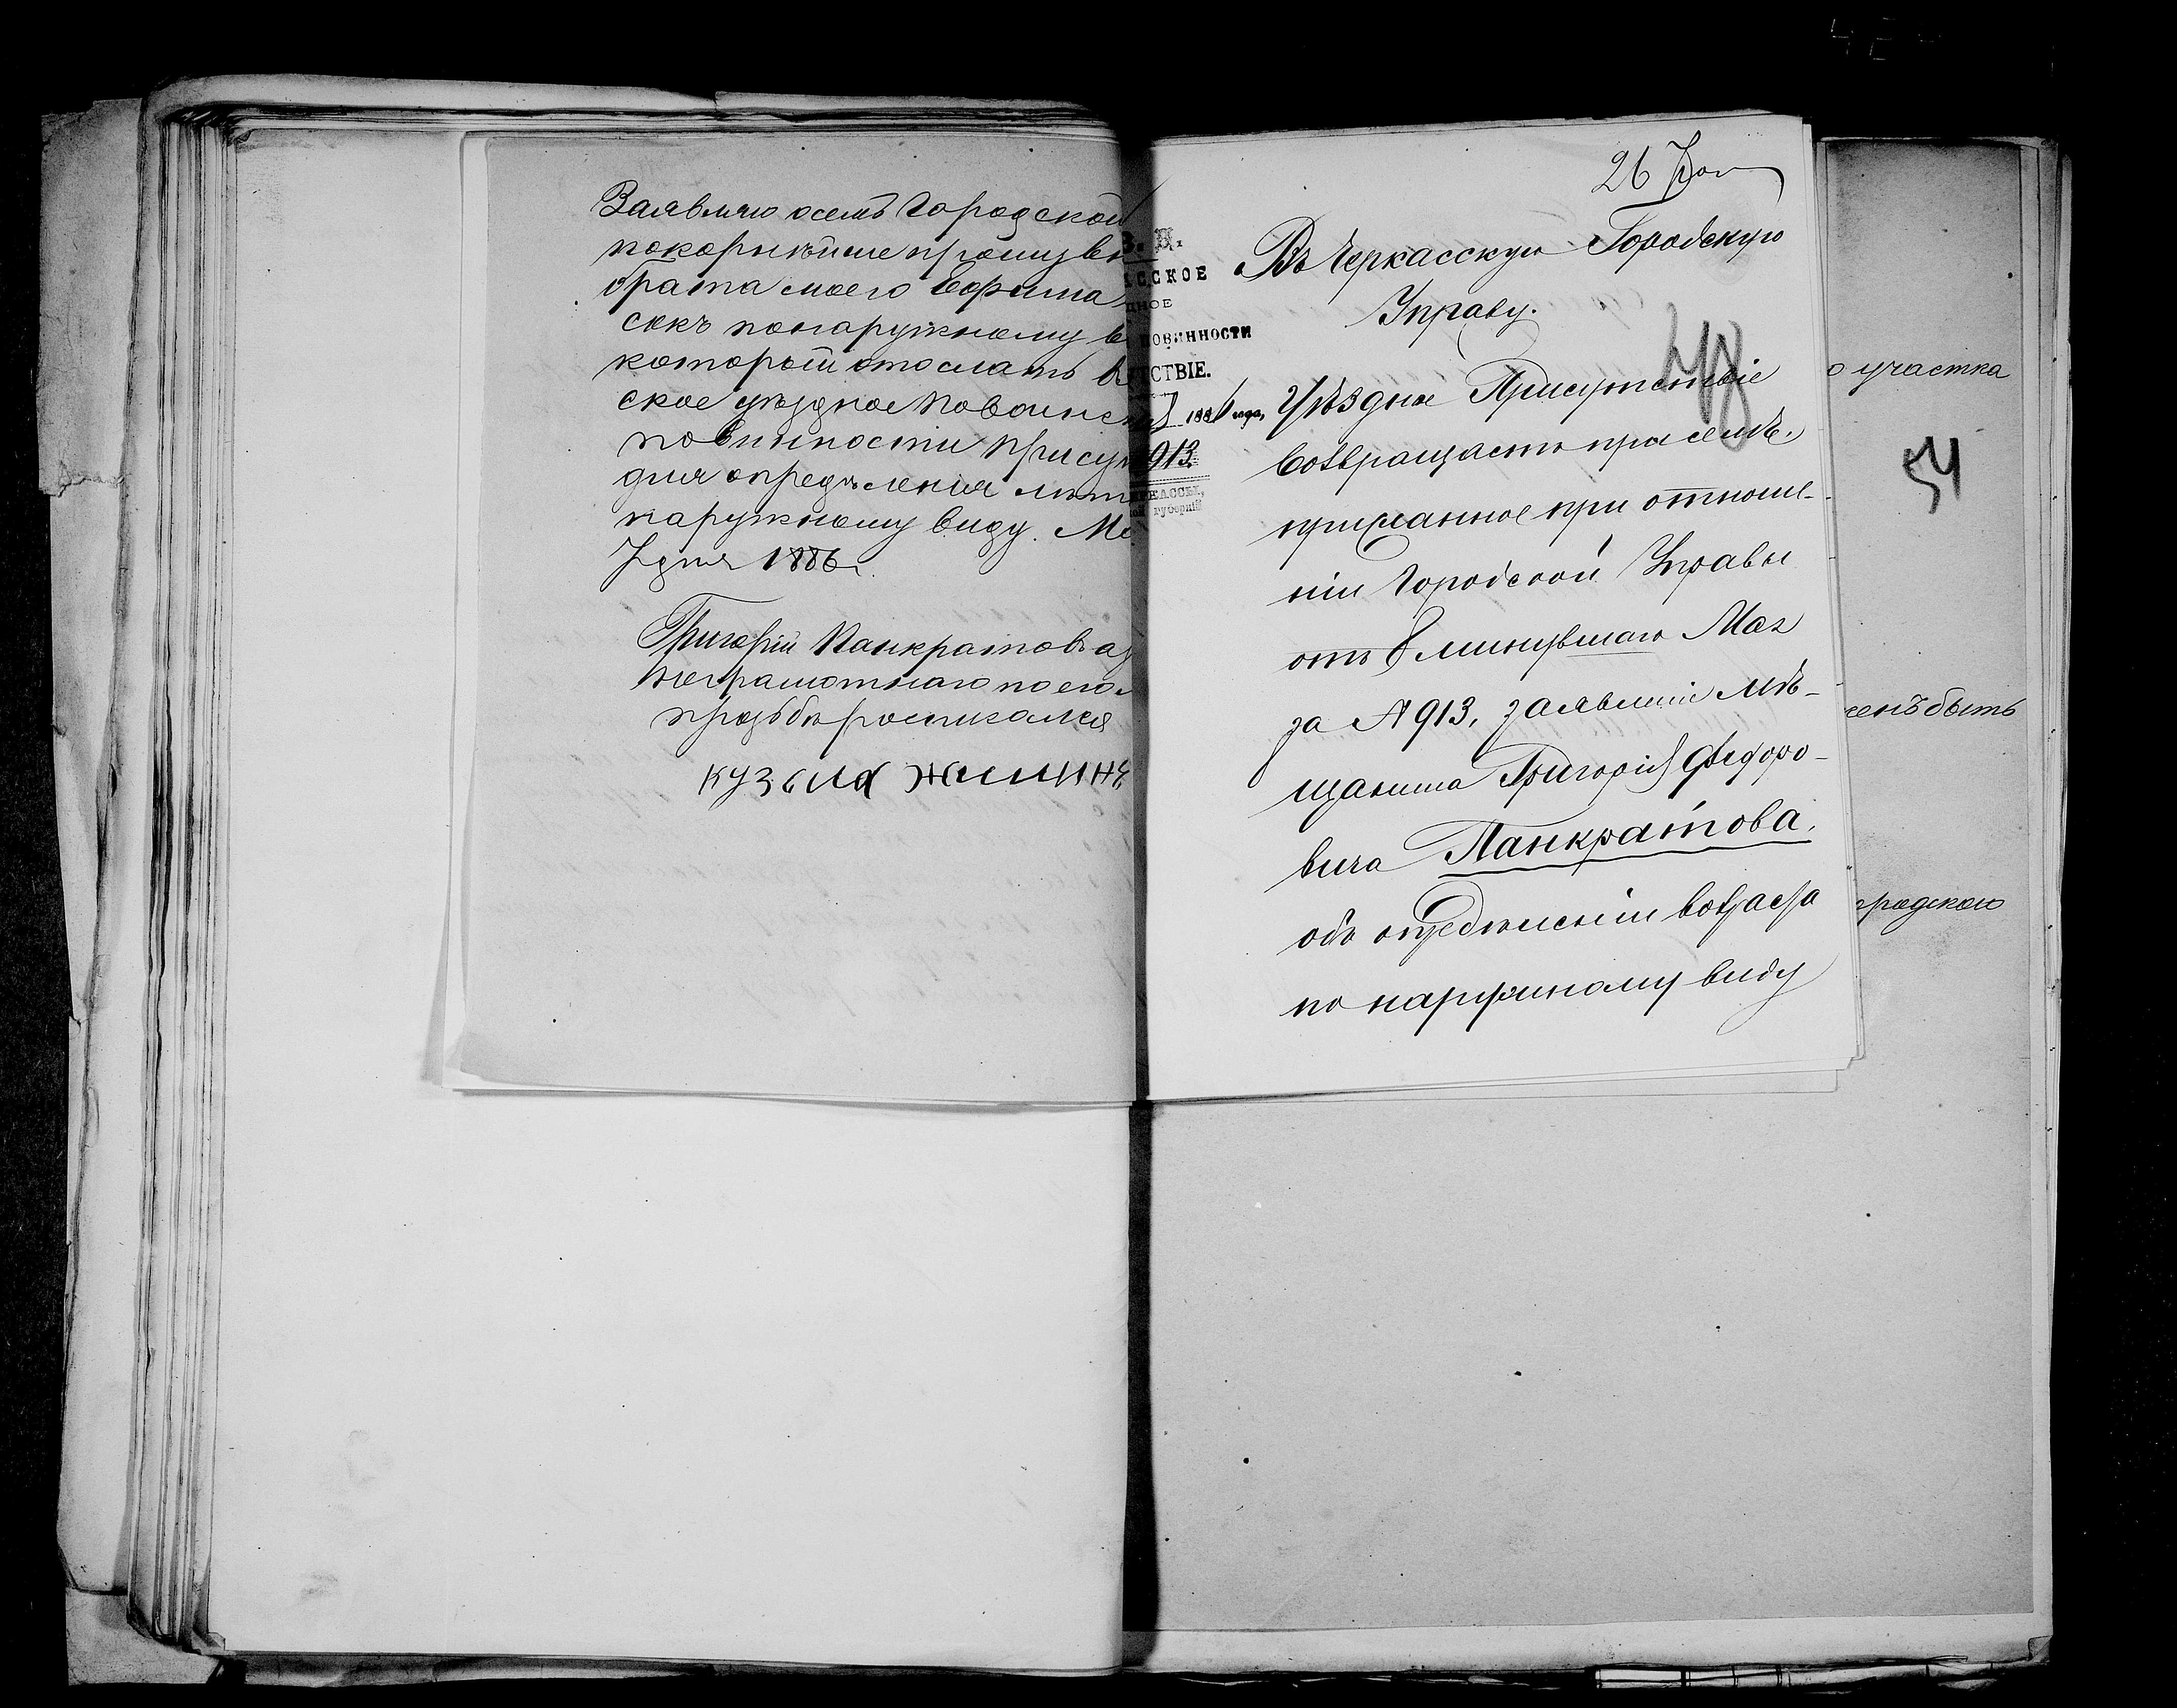 Заявляю о семъ Городской
покорнѣйше прошу вы
брата моего Ефима
сокъ понаружному в
который отослать въ
ское уѣздное по воинск
повинности присут
для опредѣленія лѣт
наружному виду. Ма
7 дня 1886 г.
Григорій Панкратовъ а
неграмотнаго по его
прозьбѣ росписался
кузьма жилинъ
З. В.
ССКОЕ
ДНОЕ
ПОВИННОСТИ
СТВІЕ.
1886 года,
913
РКАССЫ,
ой губерніи
26
Въ Черкасскую Городскую
Управу.
48
Уѣздное Присутствіе
возвращаетъ при семъ
присланное при отноше-
ніи Городской Управы
отъ 8 минувшаго Мая
за № 913, заявленіе мѣ-
щанина Григорія Федоро-
вича Панкратова,
объ опредѣленіи возраста
по наружному виду
о участка
54
женъ быть
городскою